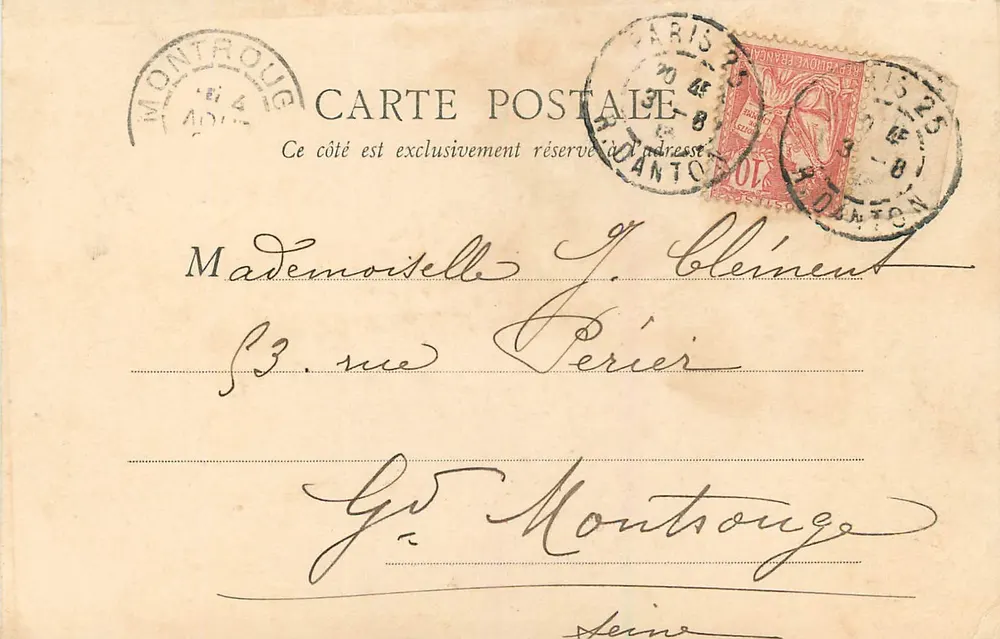 MONTROUG
4
AOUT
CARTE POSTALE
Ce côté est exclusivement réservé à l'adresse
PARIS 25
20 4E
3 - 8
R. DANTON
RÉPUBLIQUE FRANÇAISE
10
POSTES
PARIS 25
4E
3 - 8
R. DANTON
Mademoiselle J. Clément
53. rue Périer
Gd Montrouge
Seine